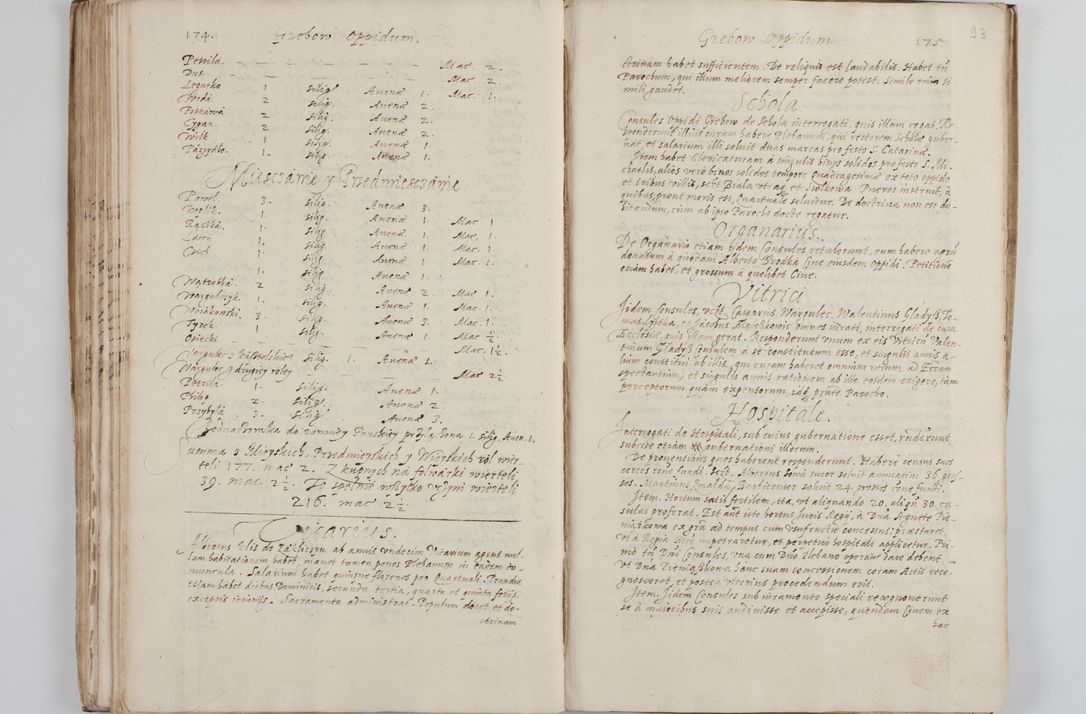 174. Grebow Oppidum.
Petrila. — — — Mac. 2.
Dus. — — — Mac 2.
Legutko 1 Silig. Auenæ 1. Mac. 1.
2 Silig. Auenæ 2.
2 Silig. Auenæ 2.
Cygan. 2 Silig. Auenæ 2.
Wilk 1. Silig. Auenæ 1.
Mieszczanie y Przedmiesczanie
Pawel. 3. Silig. Auenæ 3.
Koplik. 1. Silig. Auenæ 1. Mac 1
Kaczka. 1. Silig. Auenæ 1. Mac. 1.
1. Silig. Auenæ 1. Mac. 1.
Czech 1. Silig. Auenæ 1 Mac. 1.
1. Silig. Auenæ 1.
2. Silig. Auenæ 2. Mac 1.
1. Silig. Auenæ 1. Mac. 1.
3. Silig. Auenæ 3. Mac. 1.
1 Silig. Auenæ 1. Mac 1/2
Mac. 1 1/2.
Silig. 1. Auenæ 1.
Mac 2 1/2
Petrila 1. Silig. Auenæ 1.
Philip 2. Silig. Auenæ 2.
Przybyla 3. Silig Auenæ 3.
do Panskiey przylączona 1. Silig. Auen. 1.
Summa z Mieyskich. Przedmieyskich y Wieyskich ról wier-
teli 177. mac 2. Z kupnych na folwarki wierteli
39. mac. 2 1/2. To wszytko vczyni wierteli
216. mac 2 1/2
Vicarius.
Albertus ab annis vndecim Vicarium agens nul-
lam habitationem habet, manet tamen penes Plebanum in eadem do-
muncula. Salarium habet quinque florenos pro Quartuali. Prandia
etiam habet diebus Dominicis, secunda, tertia, quarta et quinta ferijs
exceptis ieiunijs. Sacramenta administrat. Populum docet et do-
ctrinam
Grebow Oppidum. 175 93
ctrinam habet sufficientem. De reliquis est laudabilis. Habet tñ
Parochum, qui illum meliorem semper facere potest. Simile enim si-
mili gaudet.
Schola
Consules Oppidi Grebow de Schola interrogati, quis illam regat. Re-
sponderunt illius curam habere Plebanum, qui rectorem Scholæ guber-
nat, et salarium illi soluit duas marcas pro festo S. Catarinæ.
Item habet Clericaturam à singulis binos solidos pro festo S. Mi-
chaelis, alios verò binos solidos tempore Quadragesimæ ex toto oppido
et tribus villis, scit Biala et Siolkowa. Pueros instruit, à
quibus, prout moris est, Quartuale soluitur. De doctrina non est du-
bitandum, cùm ab ipso Parocho docto regatur.
Organarius.
De Organario etiam ijdem Consules retulerunt, eum habere agrũ
donatum à quodam Alberto Brodka Ciue eiusdem oppidi. Petitionẽ
etiam habet, et grossum à quolibet Ciue.
Vitrici
Iidem Consules, vclt Casparus Warpulec. Walentinus Gladysz, To-
mas et Iacobus omnes iurati, interrogati de cura
Ecclesiæ quis illam gerat. Responderunt vnum ex eis Vitricũ Valen-
tinum Gladysz Consulem à se constitutum esse, et singulis annis a-
lium constitui ab illis, qui curam haberet omnium rerum ad Ecctam
spectantium, et singulis annis rationem ab illo eosdem exigere, tàm
perceptorum quàm expensorum, idq; pñte Parocho.
Hospitale.
Interrogati de Hospitali, sub cuius gubernatione esset, rñderunt
subesse etiam gubernationi illorum.
De prouentibus quos haberent responderunt. Habere census suos
certos ratione fundi. Scit. Albertus Sowa sutor soluit annuatim 36. gros-
sos. Martinus Barbitonsor soluit 24. gros ratione fundi.
Item. Hortum satis fertilem, ita, vt aliquando 20. aliqñ 30. ca-
sulas proferat. Est aũt iste hortus Iuris Regij, à Dña Agnete Pie-
niążkowa ex gra ad tempus cum Vsufructu concessus: præstaret
vt à Regia impetraretur, et perpetuò hospitali applicetur. Pu-
Dñi Consules, vna cum Dño Plebano operam dare debent,
vt Dña Pieniążkowa hanc suam concessionem coram Actis reco-
gnosceret, et postea vlterius procedendum erit.
Item. Iidem Consules sub iuramento speciali recognouerunt
se à maioribus suis audiuisse et accepisse, quendam Ciuem ex
hac